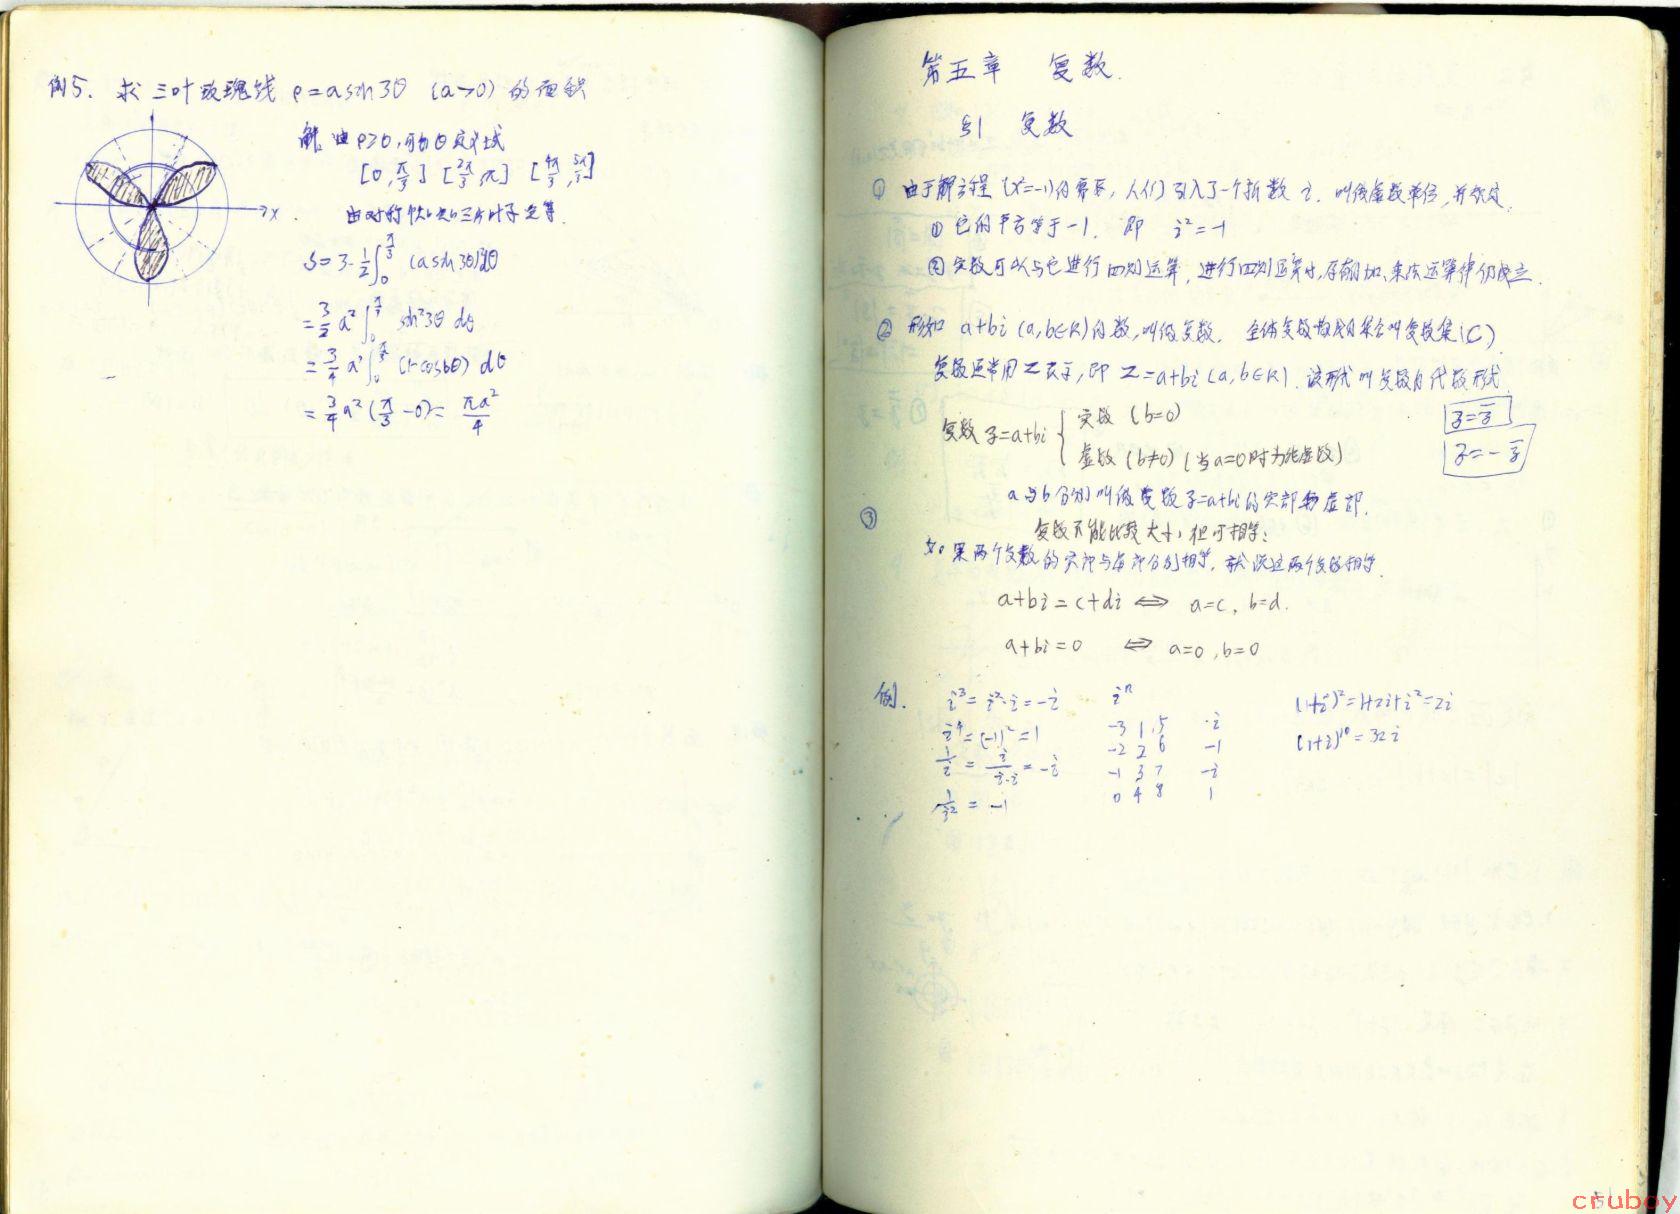 例5. 求三叶玫瑰线 ρ=asin3θ (a>0) 的面积
解. 由ρ≥0,可知θ定义域
[0,π/3] [2π/3,π] [4π/3,5π/3]
由对称性知三片叶子全等.
x
S=3·1/2∫₀^{π/3} (asin3θ)²dθ
=3/2 a²∫₀^{π/3} sin²3θ dθ
=3/4 a²∫₀^{π/3} (1-cos6θ) dθ
=3/4 a²(π/3-0)= πa²/4
第五章 复数.
§1 复数
① 由于解方程 (x²=-1)的需要, 人们引入了一个新数 i. 叫做虚数单位, 并规定.
① 它的平方等于-1. 即 i²=-1
② 实数可以与它进行四则运算, 进行四则运算时,原有加、乘法运算律仍成立.
② 形如 a+bi (a,b∈R)的数,叫做复数. 全体复数构成的集合叫复数集(C).
复数通常用Z表示,即 Z=a+bi (a,b∈R). 该形式叫复数的代数形式.
复数 z=a+bi { 实数 (b=0)
虚数 (b≠0) (当a=0时为纯虚数)
z=z̄
z=-z̄
a与b分别叫做复数z=a+bi的实部与虚部.
③ 复数不能比较大小, 但可相等:
如果两个复数的实部与虚部分别相等, 就说这两个复数相等.
a+bi=c+di ⇔ a=c, b=d.
a+bi=0 ⇔ a=0, b=0
例. i³=i²·i=-i iⁿ (1+i)²=1+2i+i²=2i
i⁴=(-1)²=1 -3 1 5 i (1+i)¹⁰=32i
1/i = i/(i·i) = -i -2 2 6 -1
1/i² = -1 -1 3 7 -i
0 4 8 1
cruboy